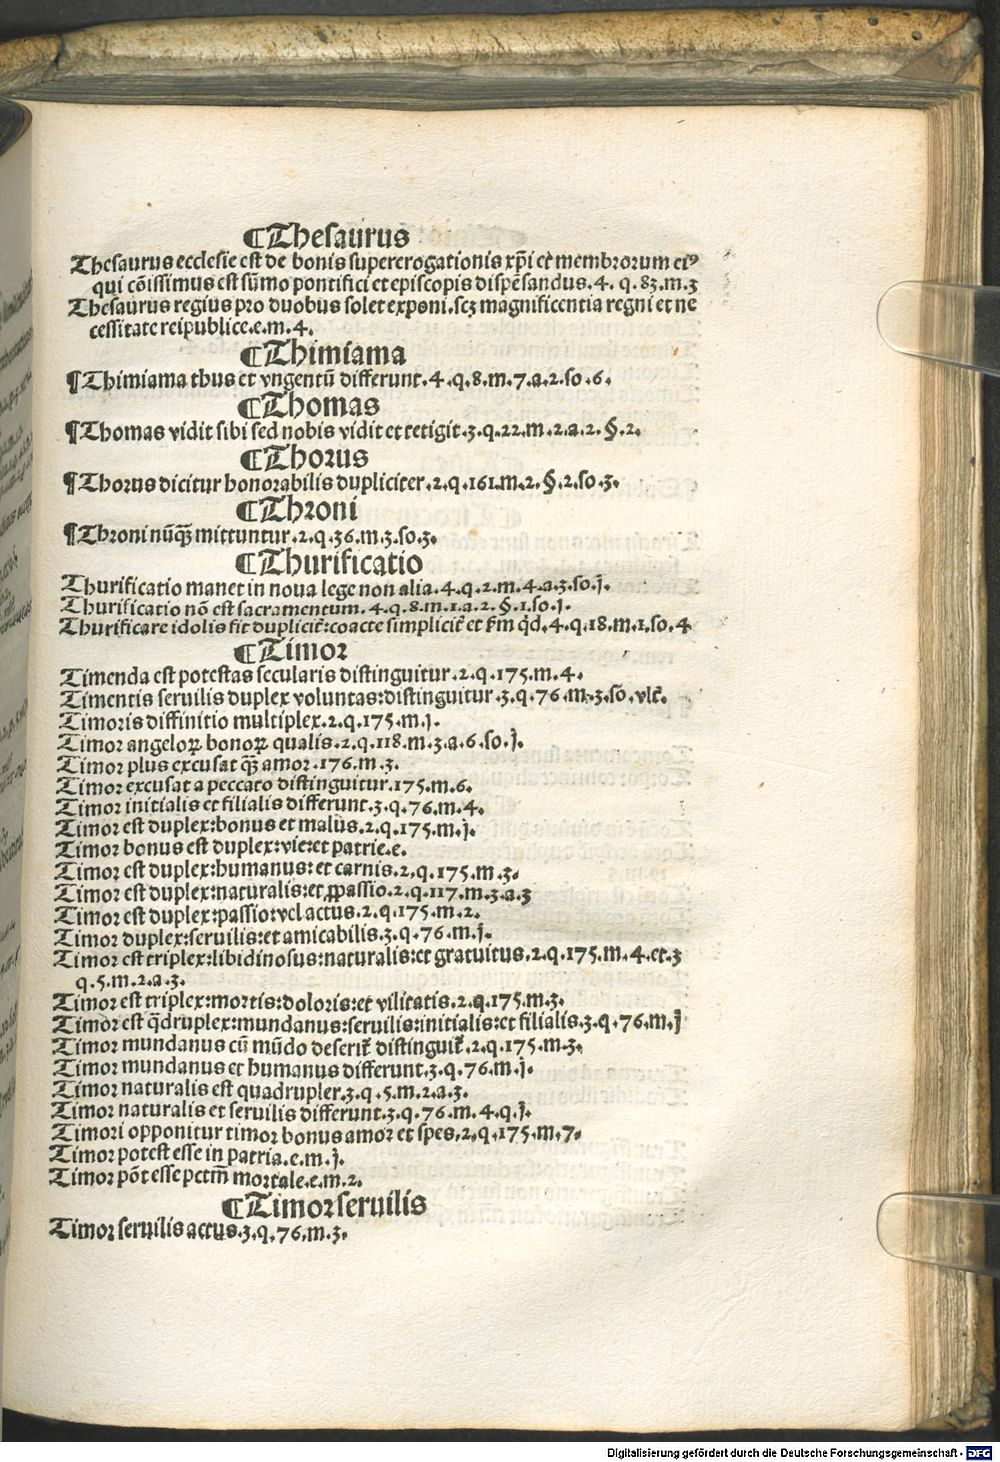 ¶Thesaurus
Thesaurus ecclesie est de bonis supererogationis xp̄i et membrorum eiꝰ
qui cōissimus est sūmo pontifici et episcopis dispēsandus.4. q.83.m.3
Thesaurus regius pro duobus solet exponi.scꝫ magnificentia regni et ne
cessitate reipublice.e.m.4.
¶Thimiama
¶Thimiama thus et vngentū differunt.4.q.8.m.7.a.2.so.6.
¶Thomas
¶Thomas vidit sibi sed nobis vidit et tetigit.3.q.22.m.2.a.2.§.2.
¶Thorus
¶Thorus dicitur honorabilis dupliciter.2.q.161.m.2.§.2.so.3.
¶Throni
¶Throni nūq̄ꝫ mittuntur.2.q.36.m.3.so.3.
¶Thurificatio
Thurificatio manet in noua lege non alia.4.q.2.m.4.a.3.so.j.
Thurificatio nō est sacramentum.4.q.8.m.1.a.2.§.1.so.j.
Thurificare idolis fit duplicit̄:coacte simplicit̄ et ẜm q̄d.4.q.18.m.1.so.4
¶Timor
Timenda est potestas secularis distinguitur.2.q.175.m.4.
Timentis seruilis duplex voluntas:distinguitur.3.q.76.m.3.so.vlt̄.
Timoris diffinitio multiplex.2.q.175.m.j.
Timor angeloꝝ bonoꝝ qualis.2.q.118.m.3.a.6.so.j.
Timor plus excusat q̄ꝫ amor.176.m.3.
Timor excusat a peccato distinguitur.175.m.6.
Timor initialis et filialis differunt.3.q.76.m.4.
Timor est duplex:bonus et malus.2.q.175.m.j.
Timor bonus est duplex:vie:et patrie.e.
Timor est duplex:humanus:et carnis.2.q.175.m.3.
Timor est duplex:naturalis:et ꝓpassio.2.q.117.m.3.a.3
Timor est duplex:passio:vel actus.2.q.175.m.2.
Timor duplex:seruilis:et amicabilis.3.q.76.m.j.
Timor est triplex:libidinosus:naturalis:et gratuitus.2.q.175.m.4.et.3
q.5.m.2.a.3.
Timor est triplex:mortis:doloris:et vilitatis.2.q.175.m.3.
Timor est q̄druplex:mundanus:seruilis:initialis:et filialis.3.q.76.m.j
Timor mundanus cū mūdo deserit̄ distinguit̄.2.q.175.m.3.
Timor mundanus et humanus differunt.3.q.76.m.j.
Timor naturalis est quadrupler.3.q.5.m.2.a.3.
Timor naturalis et seruilis differunt.3.q.76.m.4.q.j.
Timori opponitur timor bonus amor et spes.2.q.175.m.7.
Timor potest esse in patria.e.m.j.
Timor pōt esse pctm̄ mortale.e.m.2.
¶Timor seruilis
Timor seruilis actus.3.q.76.m.3.
Digitalisierung gefördert durch die Deutsche Forschungsgemeinschaft - DFG